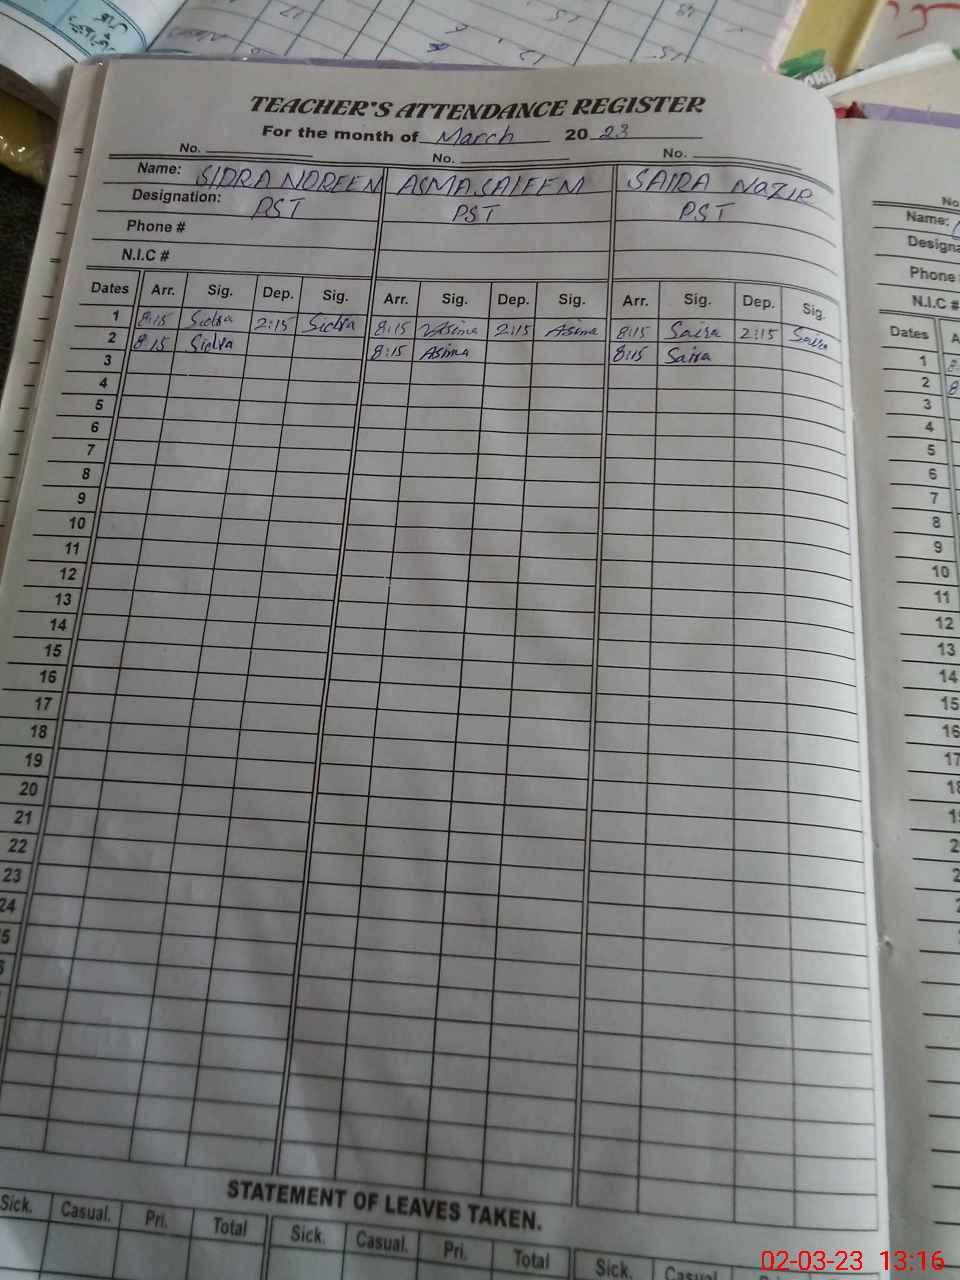 TEACHER'S ATTENDANCE REGISTER
For the month of March 2023
No. No. No.
Name: SIDRA NOREEN ASMA SALEEM SAIRA NAZIR
Designation: PST PST PST
Phone #
N.I.C #
Dates Arr. Sig. Dep. Sig. Arr. Sig. Dep. Sig. Arr. Sig. Dep. Sig.
1 8:15 Sidra 2:15 Sidra 8:15 Asima 2:15 Asima 8:15 Saira 2:15 Saira
2 8:15 Sidra 8:15 Asima 8:15 Saira
3
4
5
6
7
8
9
10
11
12
13
14
15
16
17
18
19
20
21
22
23
24
STATEMENT OF LEAVES TAKEN.
Sick. Casual. Pri. Total Sick. Casual. Pri. Total Sick. Casual
No
Name:
Designa
Phone
N.I.C #
Dates A
1 8
2 8
3
4
5
6
7
8
9
10
11
12
13
14
15
16
17
18
02-03-23 13:16